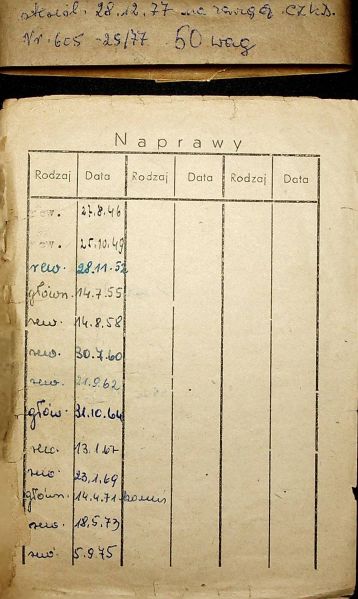 28.12.77 na
Nr. 605-25/77 50 wag
Naprawy
Rodzaj Data Rodzaj Data Rodzaj Data
rew. 27.8.46
rew. 25.10.49
rew. 28.11.52
główn. 14.7.55
rew. 14.8.58
rew. 30.7.60
rew. 21.9.62
głów. 31.10.64
rew. 13.1.67
rew. 23.1.69
główn. 14.4.71
rew. 18.5.73
rew. 5.9.75